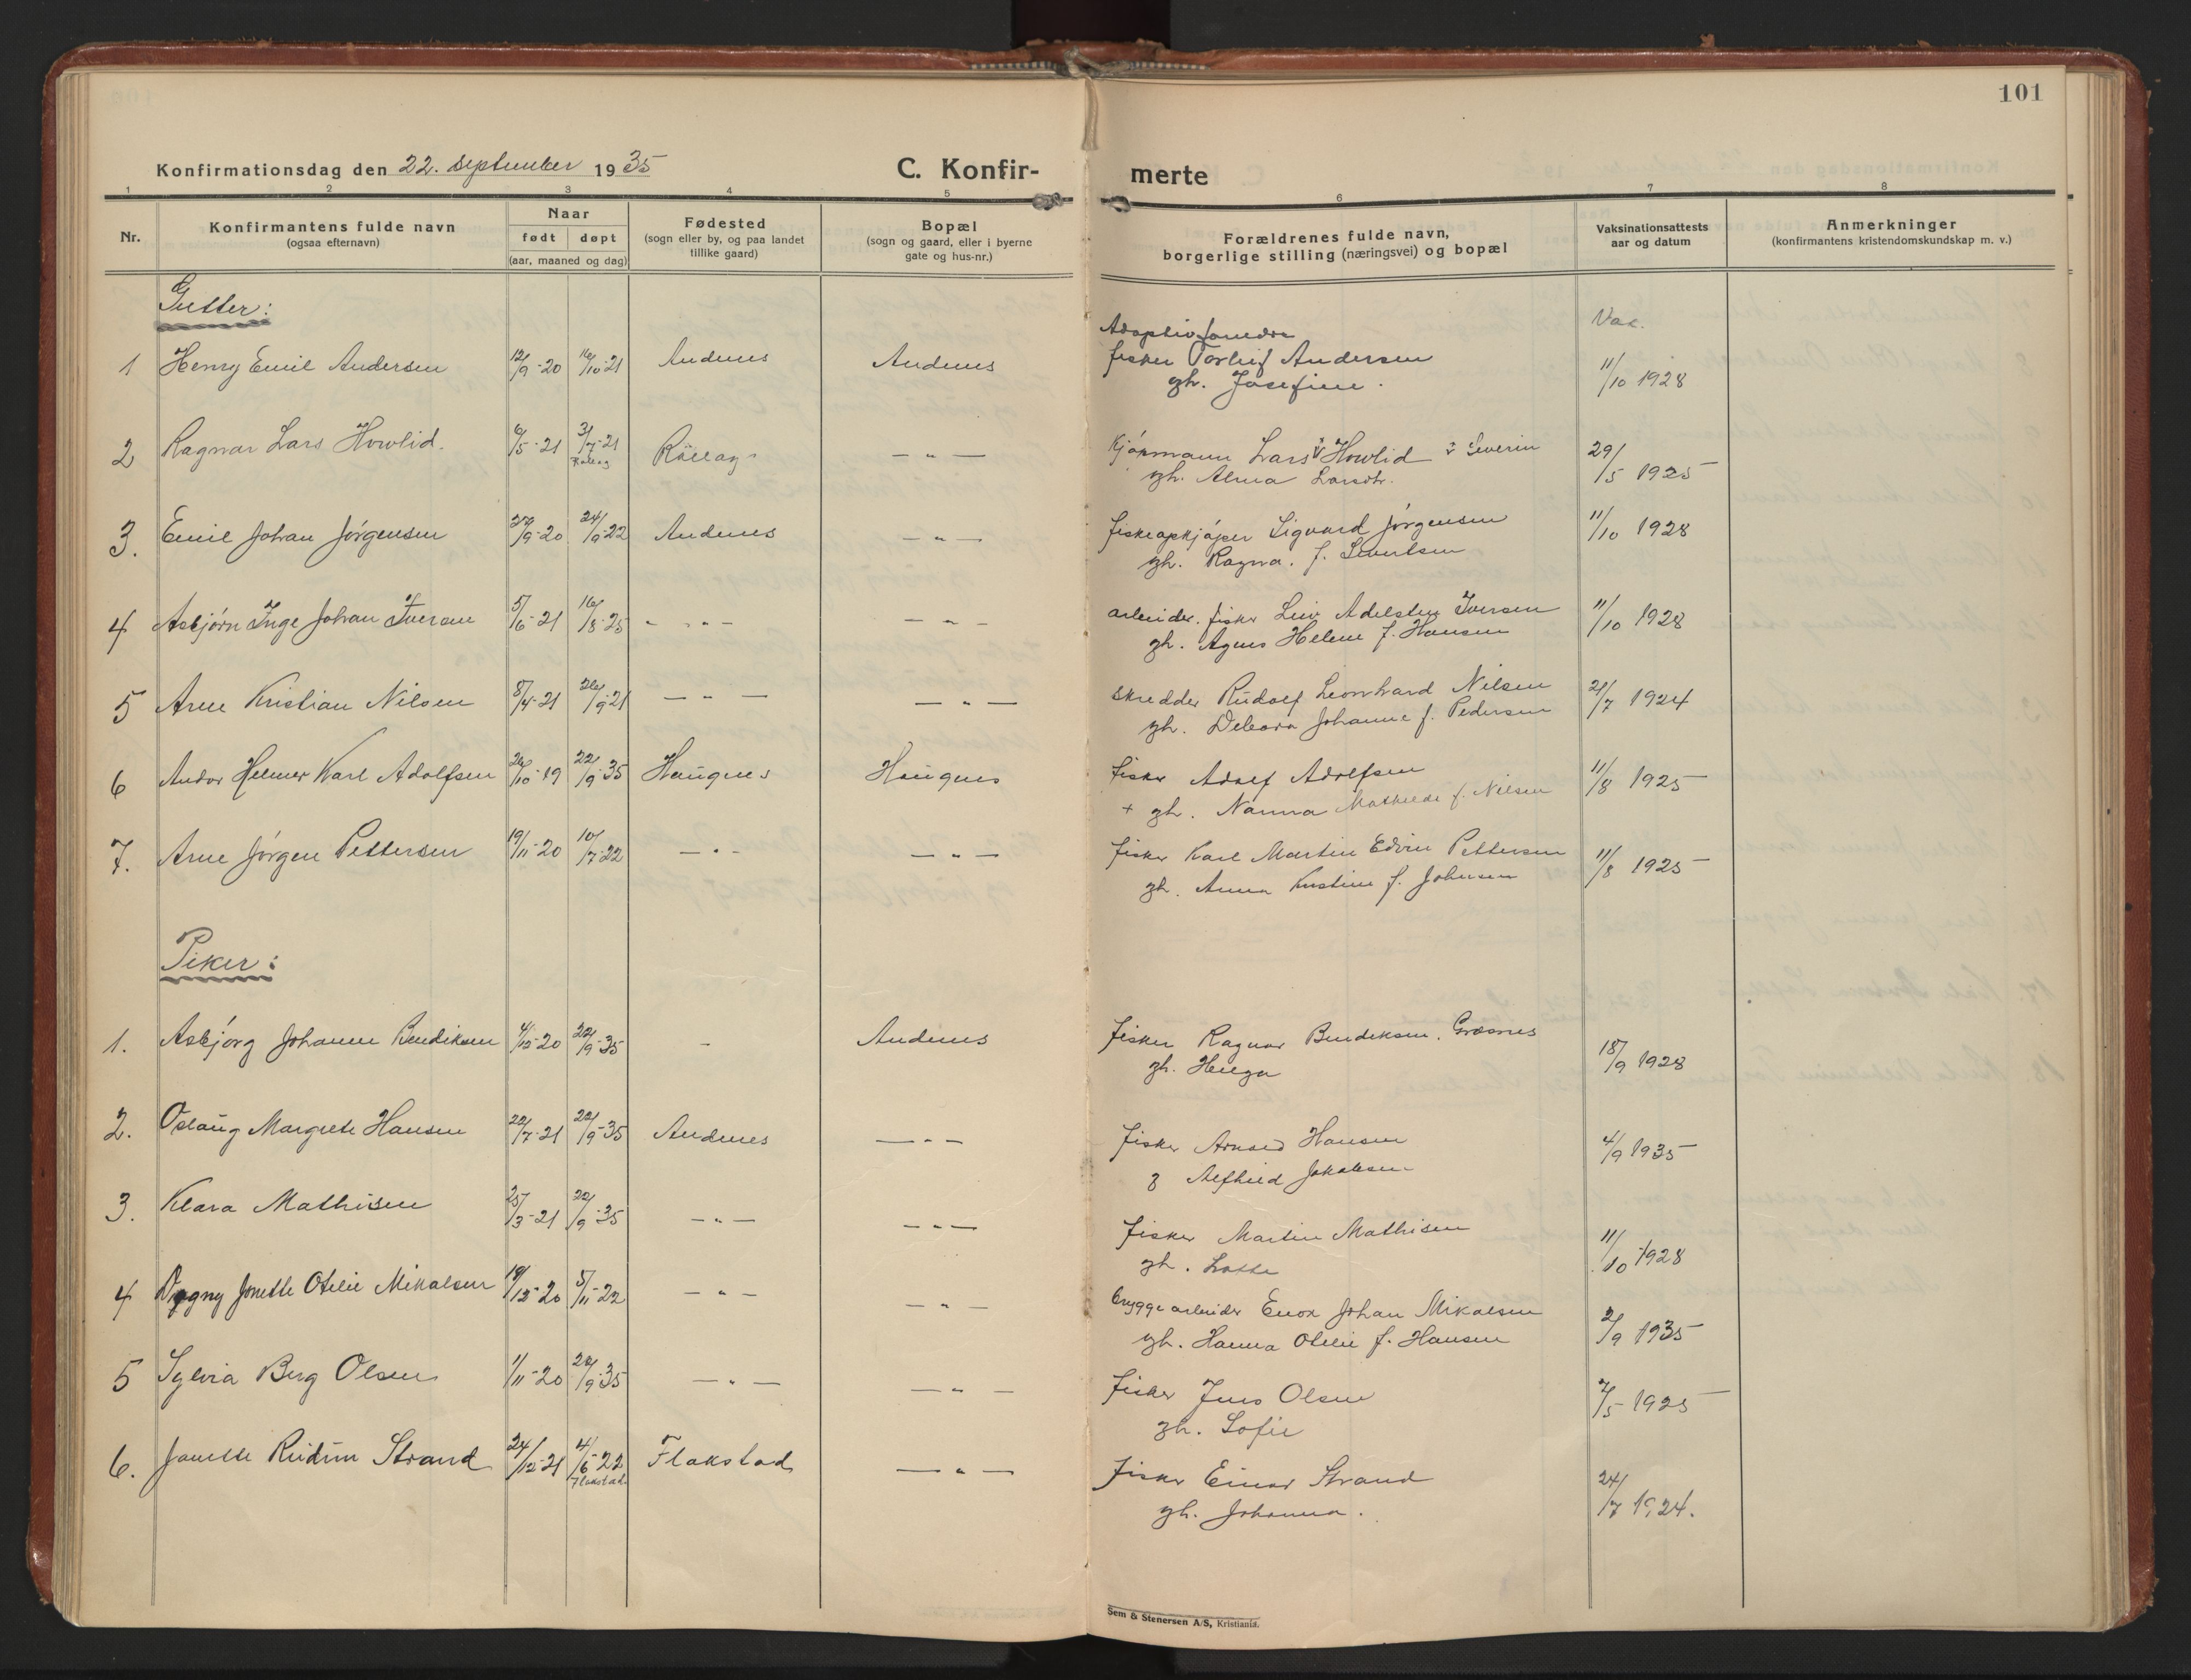 101
Konfirmationsdag den 22. september 1935
C. Konfir-
merte
1 2 3 4 5 6 7 8
Nr.
Konfirmantens fulde navn
(ogsaa efternavn)
Naar
født døpt
(aar, maaned og dag)
Fødested
(sogn eller by, og paa landet
tillike gaard)
Bopæl
(sogn og gaard, eller i byerne
gate og hus-nr.)
Forældrenes fulde navn,
borgerlige stilling (næringsvei) og bopæl
Vaksinationsattests
aar og datum
Anmerkninger
(konfirmantens kristendomskundskap m. v.)
Gutter:
Vac.
Adoptivforeldre
1 Henry Emil Andersen 12/9-20 16/10-21 Andenes Andenes fisker Torleif Andersen 11/10 1928
gh. Josefine.
2 Ragnar Lars Howlid. 6/5-21 31/7-21 Rollag — " — Kjøpmann Lars Howlid Severin 29/5 1925
Rollag
gh. Alma Larsdtr.
3. Emil Johan Jørgensen 27/9-20 24/9-22 Andenes — " — fiskeopkjøper Sigvard Jørgensen 11/10 1928
gh. Ragna. f. Sivertsen
4 Asbjørn Inge Johan Iversen 5/6-21 16/8-25 — " — — " — arbeider. fisker Leiv Adelsten Iversen 11/10 1928
gh. Agnes Helene f. Hansen
5 Arne Kristian Nilsen 8/4-21 26/9-21 — " — — " — skredder Rudolf Leonhard Nilsen 21/7 1924
gh. Debora Johanne f. Pedersen
6 Andor Helmer Karl Adolfsen 26/10-19 22/9-35 Haugnes Haugnes fisker Adolf Adolfsen 11/8 1925
+ gh. Nanna Mathilde f. Nilsen
7. Arne Jørgen Pettersen 19/11-20 10/7-22 — " — — " — fisker Karl Martin Edvin Pettersen 11/8 1925
gh. Anna Kristine f. Johnsen
Piker:
1. Asbjørg Johanne Bendiksen 4/12-20 22/9-35 - Andenes fisker Ragnar Bendiksen. Græsnes 18/9 1928
gh. Helga
2. Oslaug Margrete Hansen 22/7-21 22/9-35 Andenes — " — fisker Hansen 4/9 1935
Alfhild Jakobsen
3. Klara Mathisen 25/3-21 22/9-35 — " — — " — fisker Martin Mathisen 11/10 1928
gh. Lotte
4 Dagny Jonette Otelie Mikalsen 19/12-20 5/11-22 — " — — " — bryggearbeider Enok Johan Mikalsen 2/9 1935
gh. Hanna Otelie f. Hansen
5 Sylvia Berg Olsen 1/11-20 22/9-35 — " — — " — fisker Jens Olsen 7/5 1925
gh. Sofie
6. Jonette Strand 24/12-21 4/6-22 Flakstad — " — fisker Einar Strand 24/7 1924.
Flakstad
gh. Johanna.
Sem & Stenersen A/S, Kristiania.